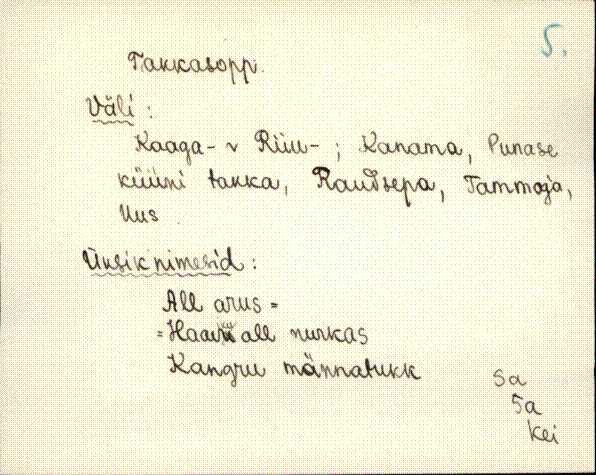 5.
Takkasopp.
Väli :
Kaaga- v Riiu- ; Kanama, Punase
küüni takka, Raudsepa, Tammoja,
Uus
Üksiknimesid :
All arus =
all nurkas
Kangru männatukk
Sa
5a
Kei